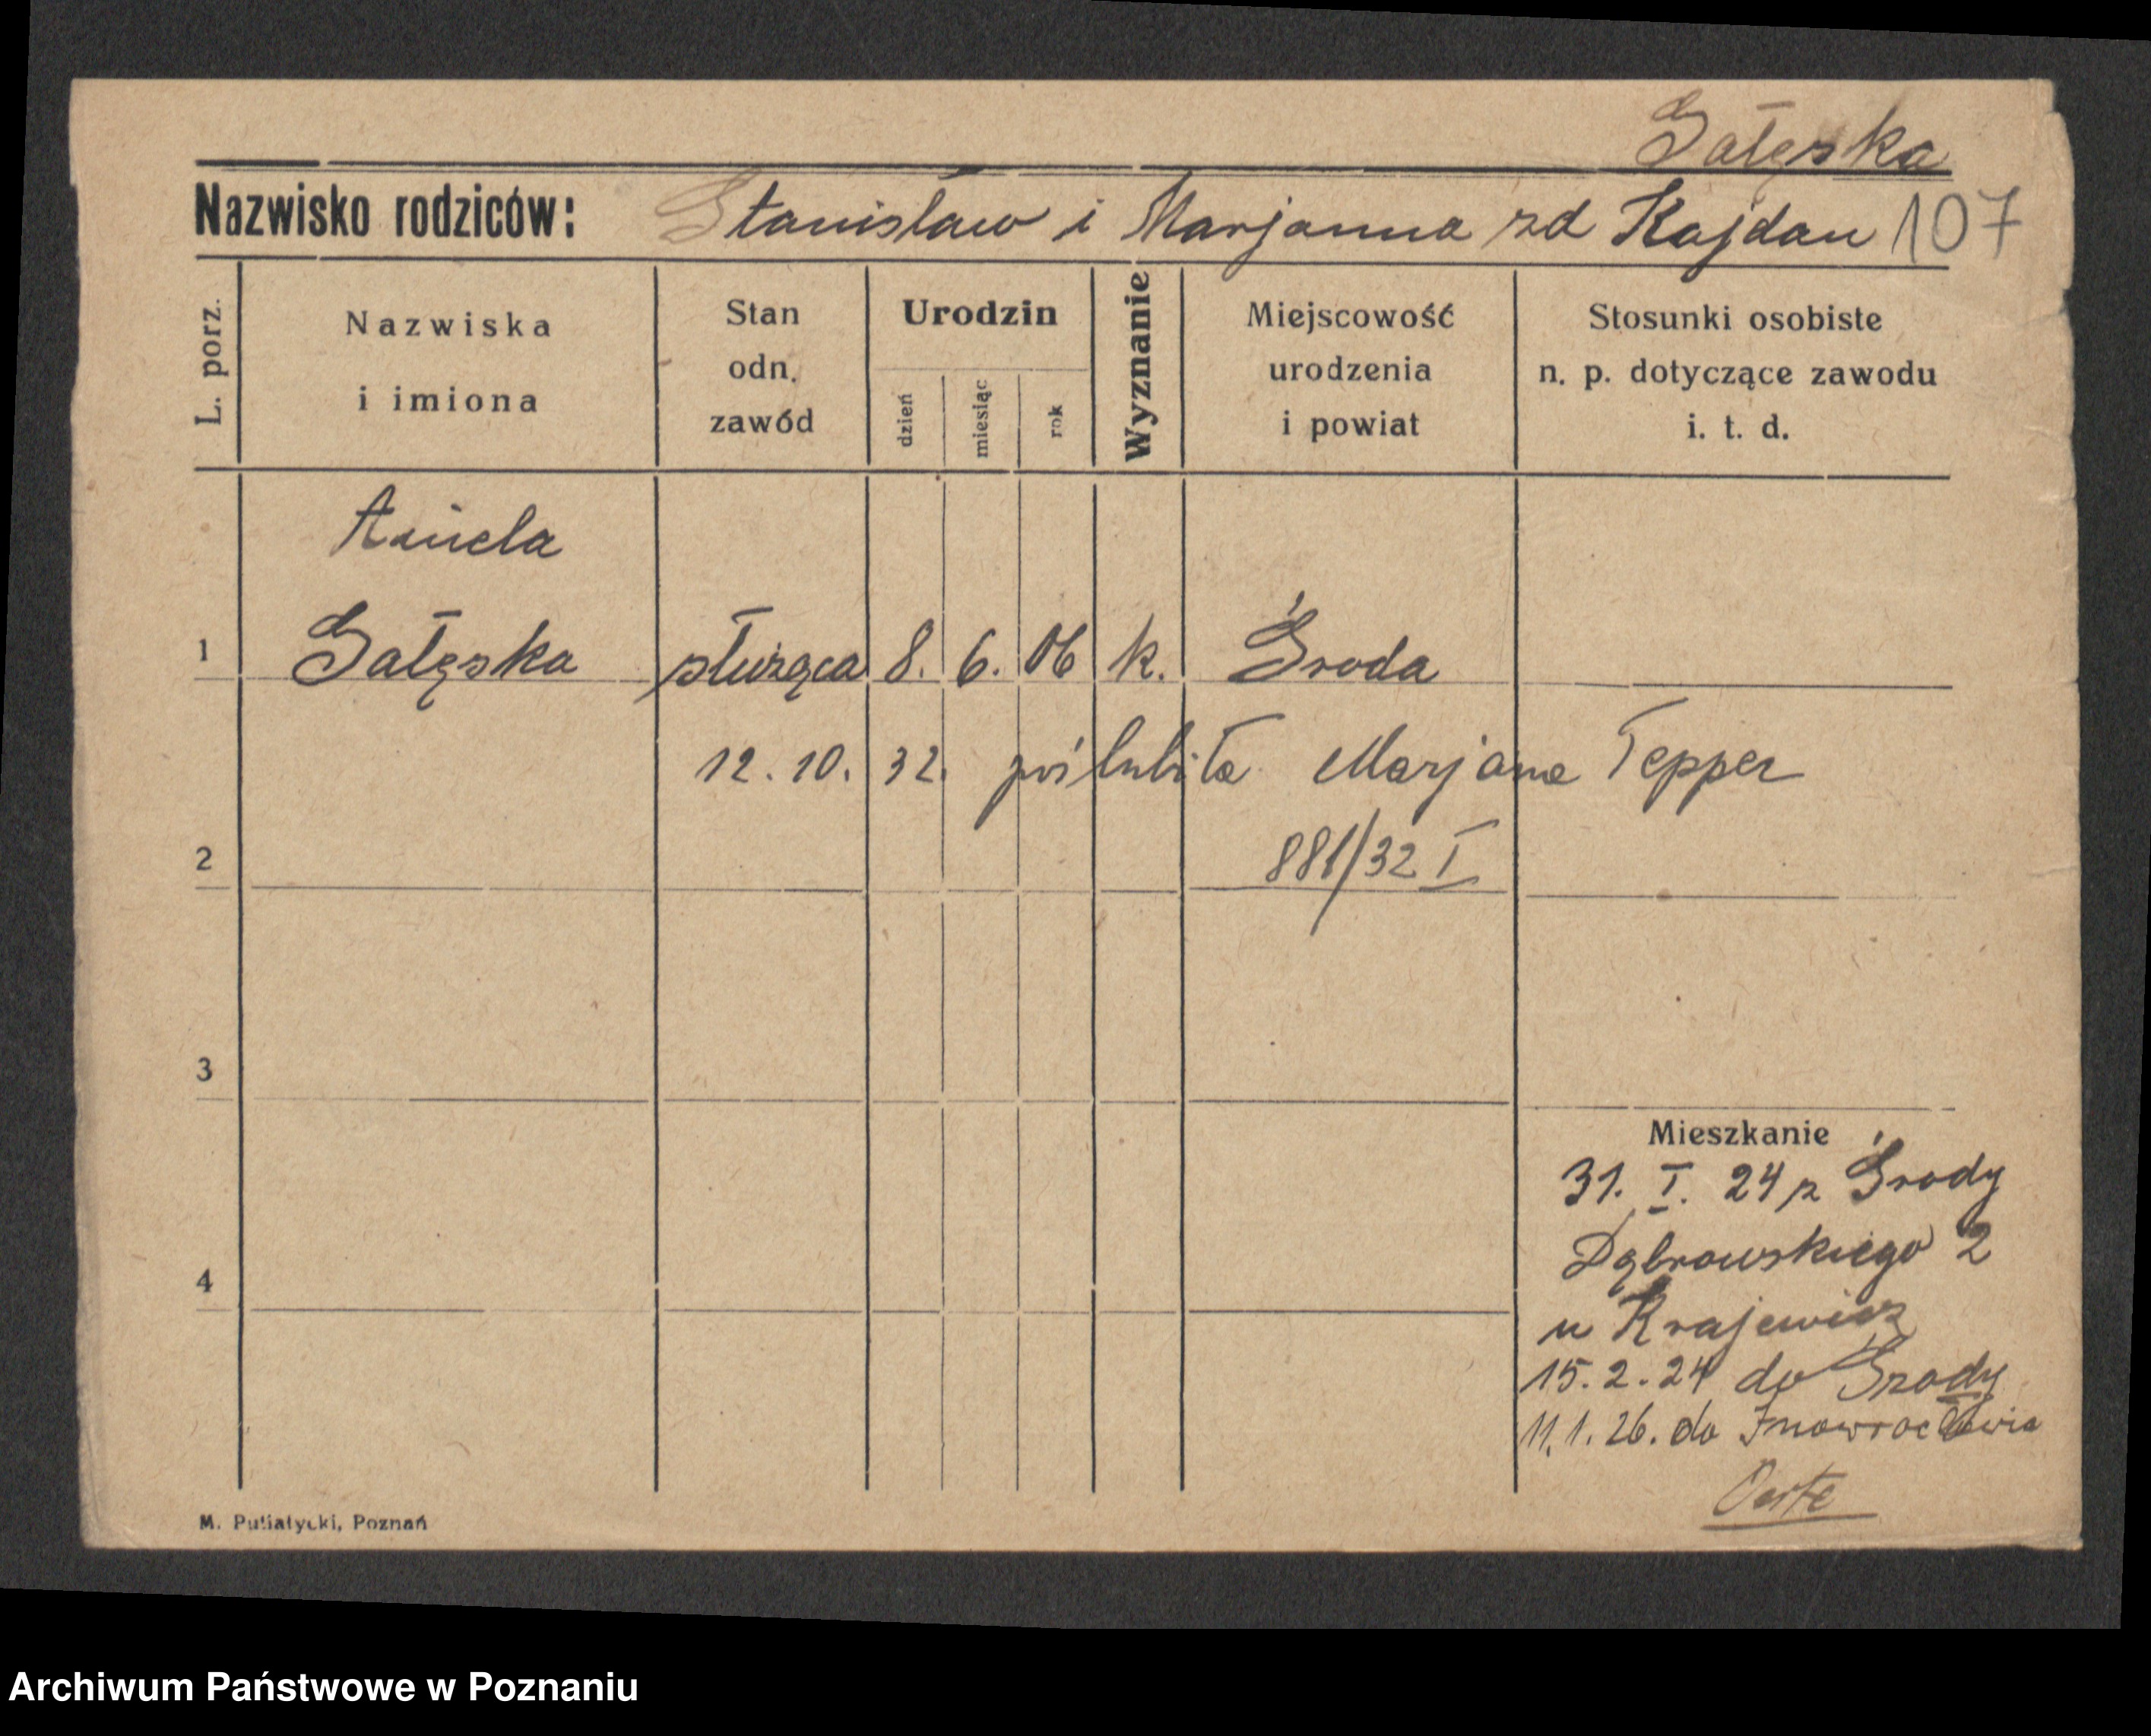 Gałęska
Nazwisko rodziców: Stanisław i Marjanna zd Kajdan 107
L. porz.
Nazwiska
i imiona
Stan
odn.
zawód
Urodzin
dzień
miesiąc
rok
Wyznanie
Miejscowość
urodzenia
i powiat
Stosunki osobiste
n. p. dotyczące zawodu
i. t. d.
Aniela
1 Gałęska służąca 8. 6. 06 k. Środa
12. 10. 32. poślubiła Marjana Tepper
2 881/32 I
3
Mieszkanie
31. I. 24 z Środy
Dąbrowskiego 2
4
u Krajewicz
15. 2. 24 do Środy
11. 1. 26. do Inowrocławia
M. Putiatycki, Poznań
Archiwum Państwowe w Poznaniu